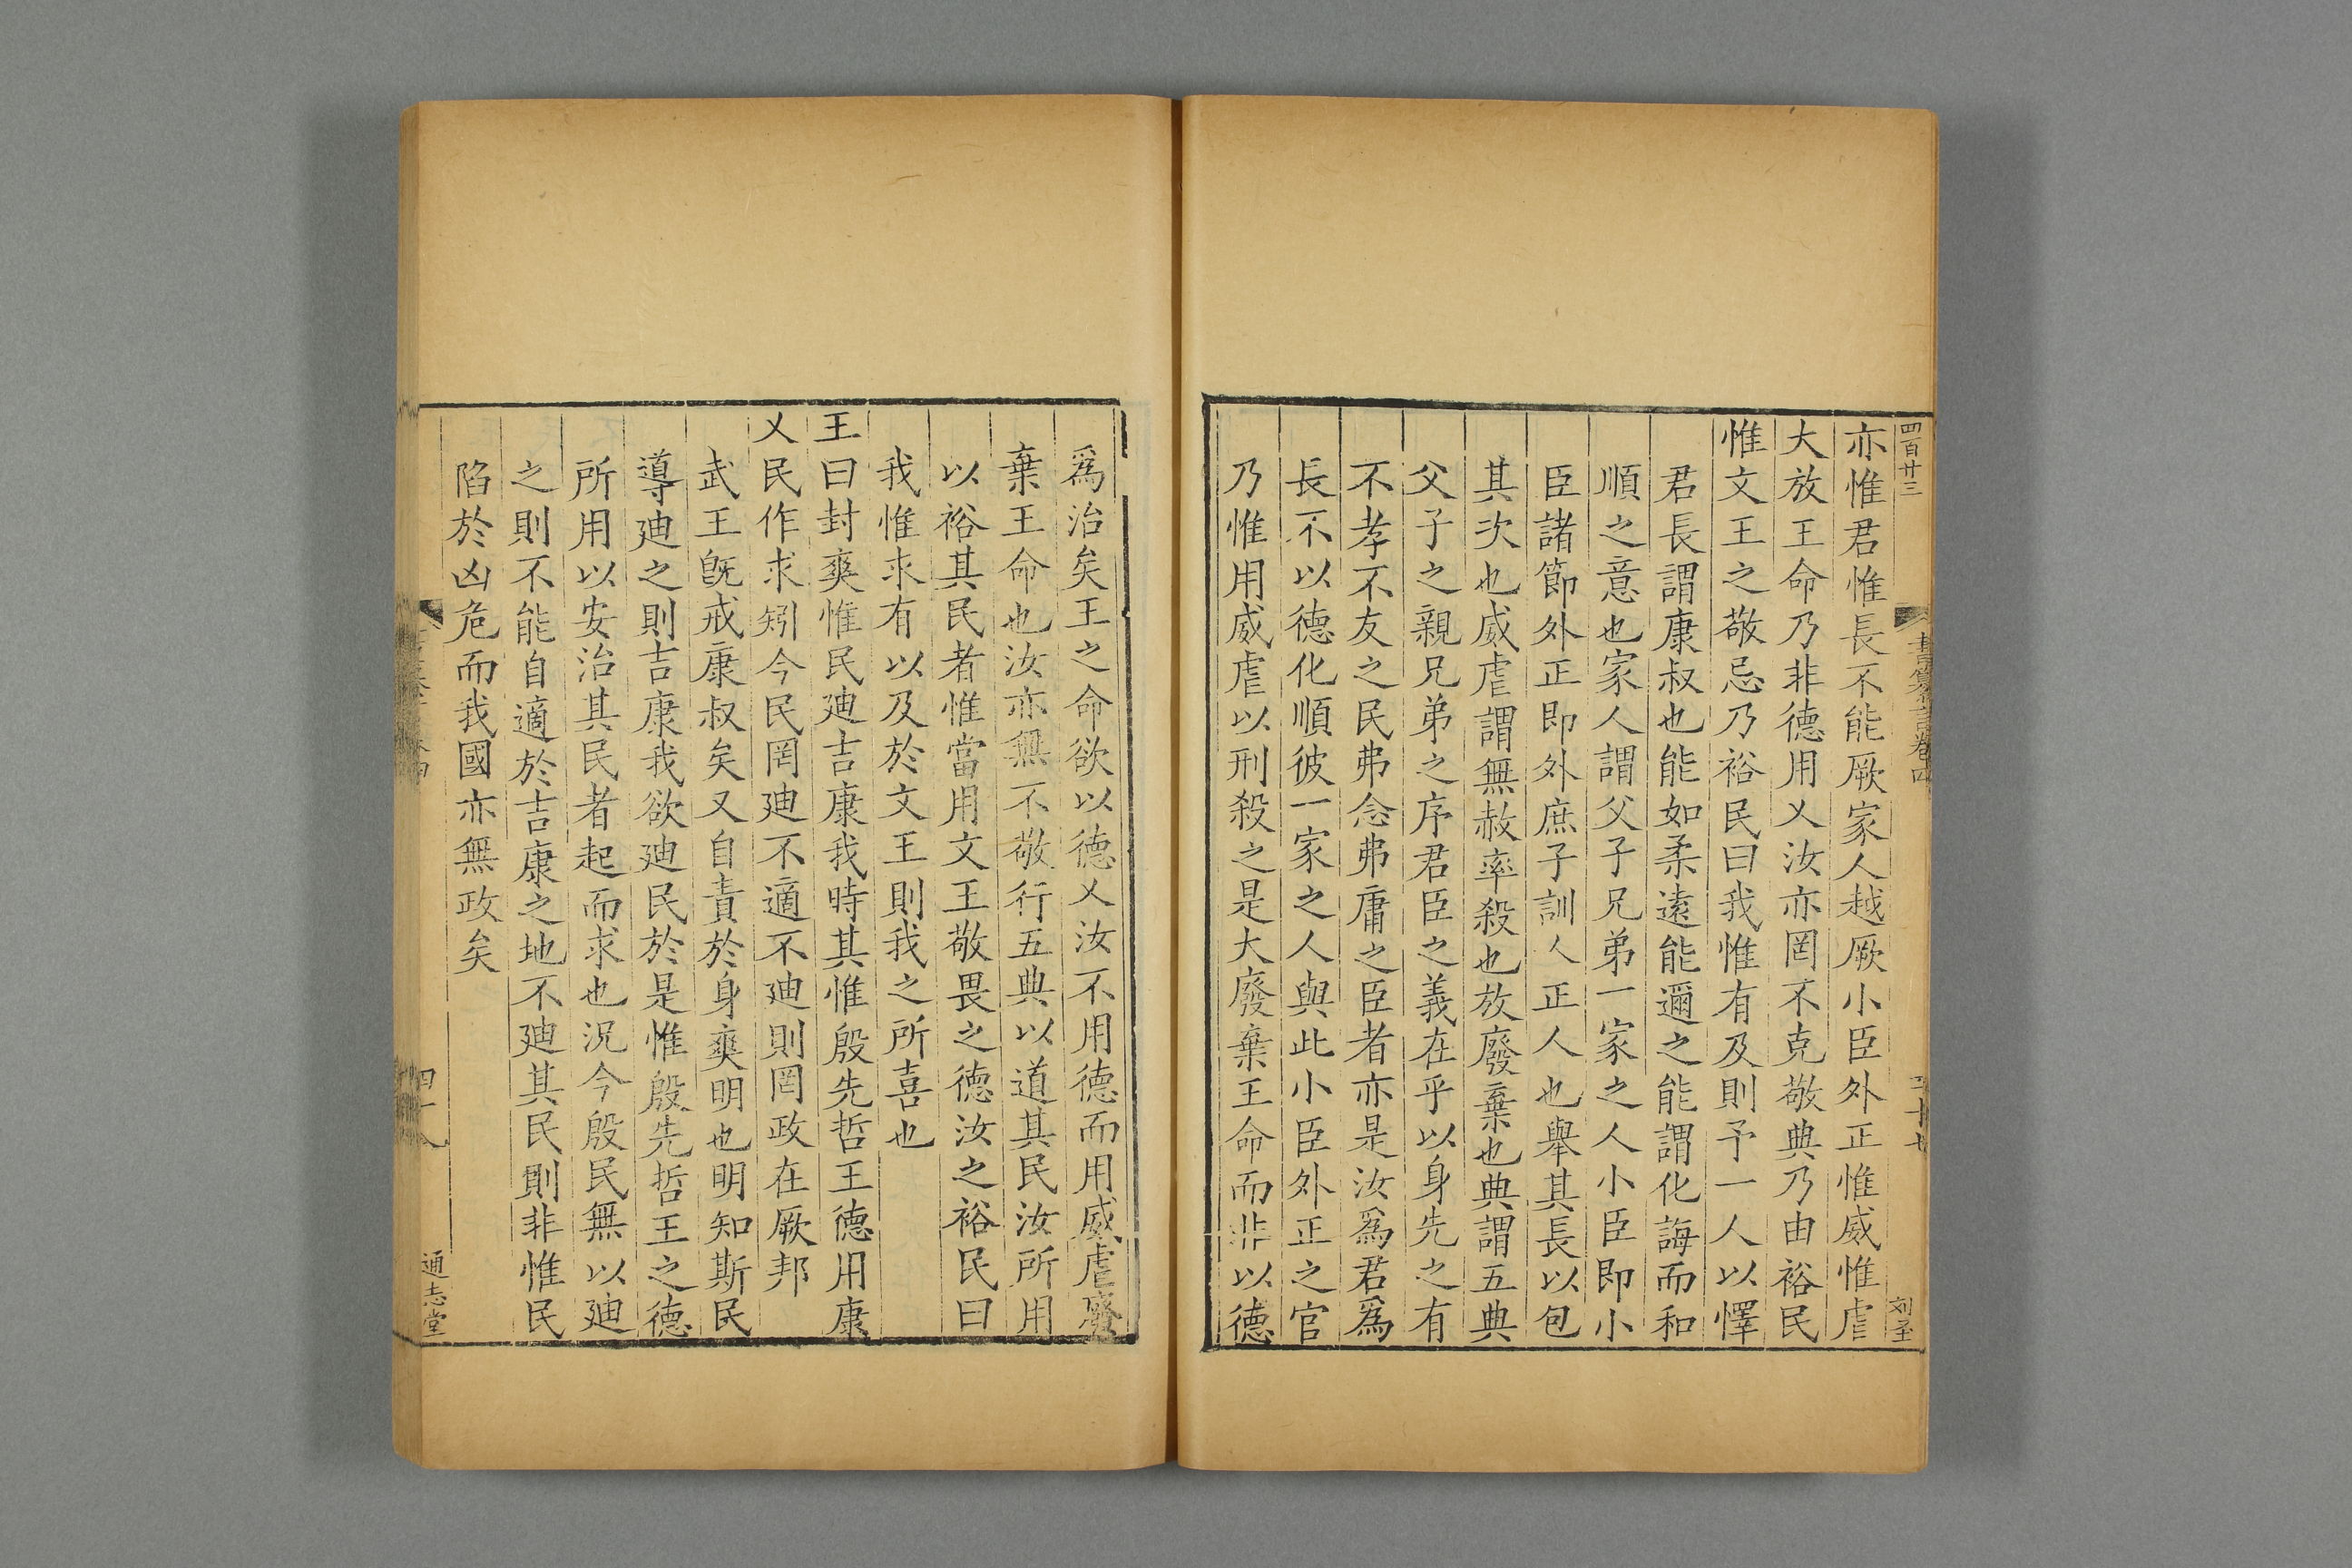 四百廿三
書纂言卷四
刘圣
亦惟君惟長不能厥家人越厥小臣外正惟威惟虐
大放王命乃非德用乂汝亦罔不克敬典乃由裕民
惟文王之敬忌乃裕民曰我惟有及則予一人以懌
君長謂康叔也能如柔遠能邇之能謂化誨而和
順之意也家人謂父子兄弟一家之人小臣即小
臣諸節外正即外庶子訓人正人也舉其長以包
其次也威虐謂無赦率殺也放廢棄也典謂五典
父子之親兄弟之序君臣之義在乎以身先之有
不孝不友之民弗念弗庸之臣者亦是汝爲君爲
長不以德化順彼一家之人與此小臣外正之官
乃惟用威虐以刑殺之是大廢棄王命而非以德
爲治矣王之命欲以德乂汝不用德而用威虐廢
棄王命也汝亦無不敬行五典以道其民汝所用
以裕其民者惟當用文王敬畏之德汝之裕民曰
我惟求有以及於文王則我之所喜也
王曰封爽惟民迪吉康我時其惟殷先哲王德用康
乂民作求矧今民罔迪不適不迪則罔政在厥邦
武王旣戒康叔矣又自責於身爽明也明知斯民
導迪之則吉康我欲迪民於是惟殷先哲王之德
所用以安治其民者起而求也况今殷民無以迪
之則不能自適於吉康之地不迪其民則非惟民
陷於凶危而我國亦無政矣
四十八
通志堂